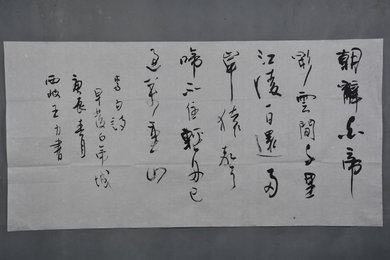 朝辞白帝
彩雲間千里
江陵一日還兩
岸猿声
啼不住輕舟已
過萬重山
李白詩
早發白帝城
庚辰春月
西坡王力書